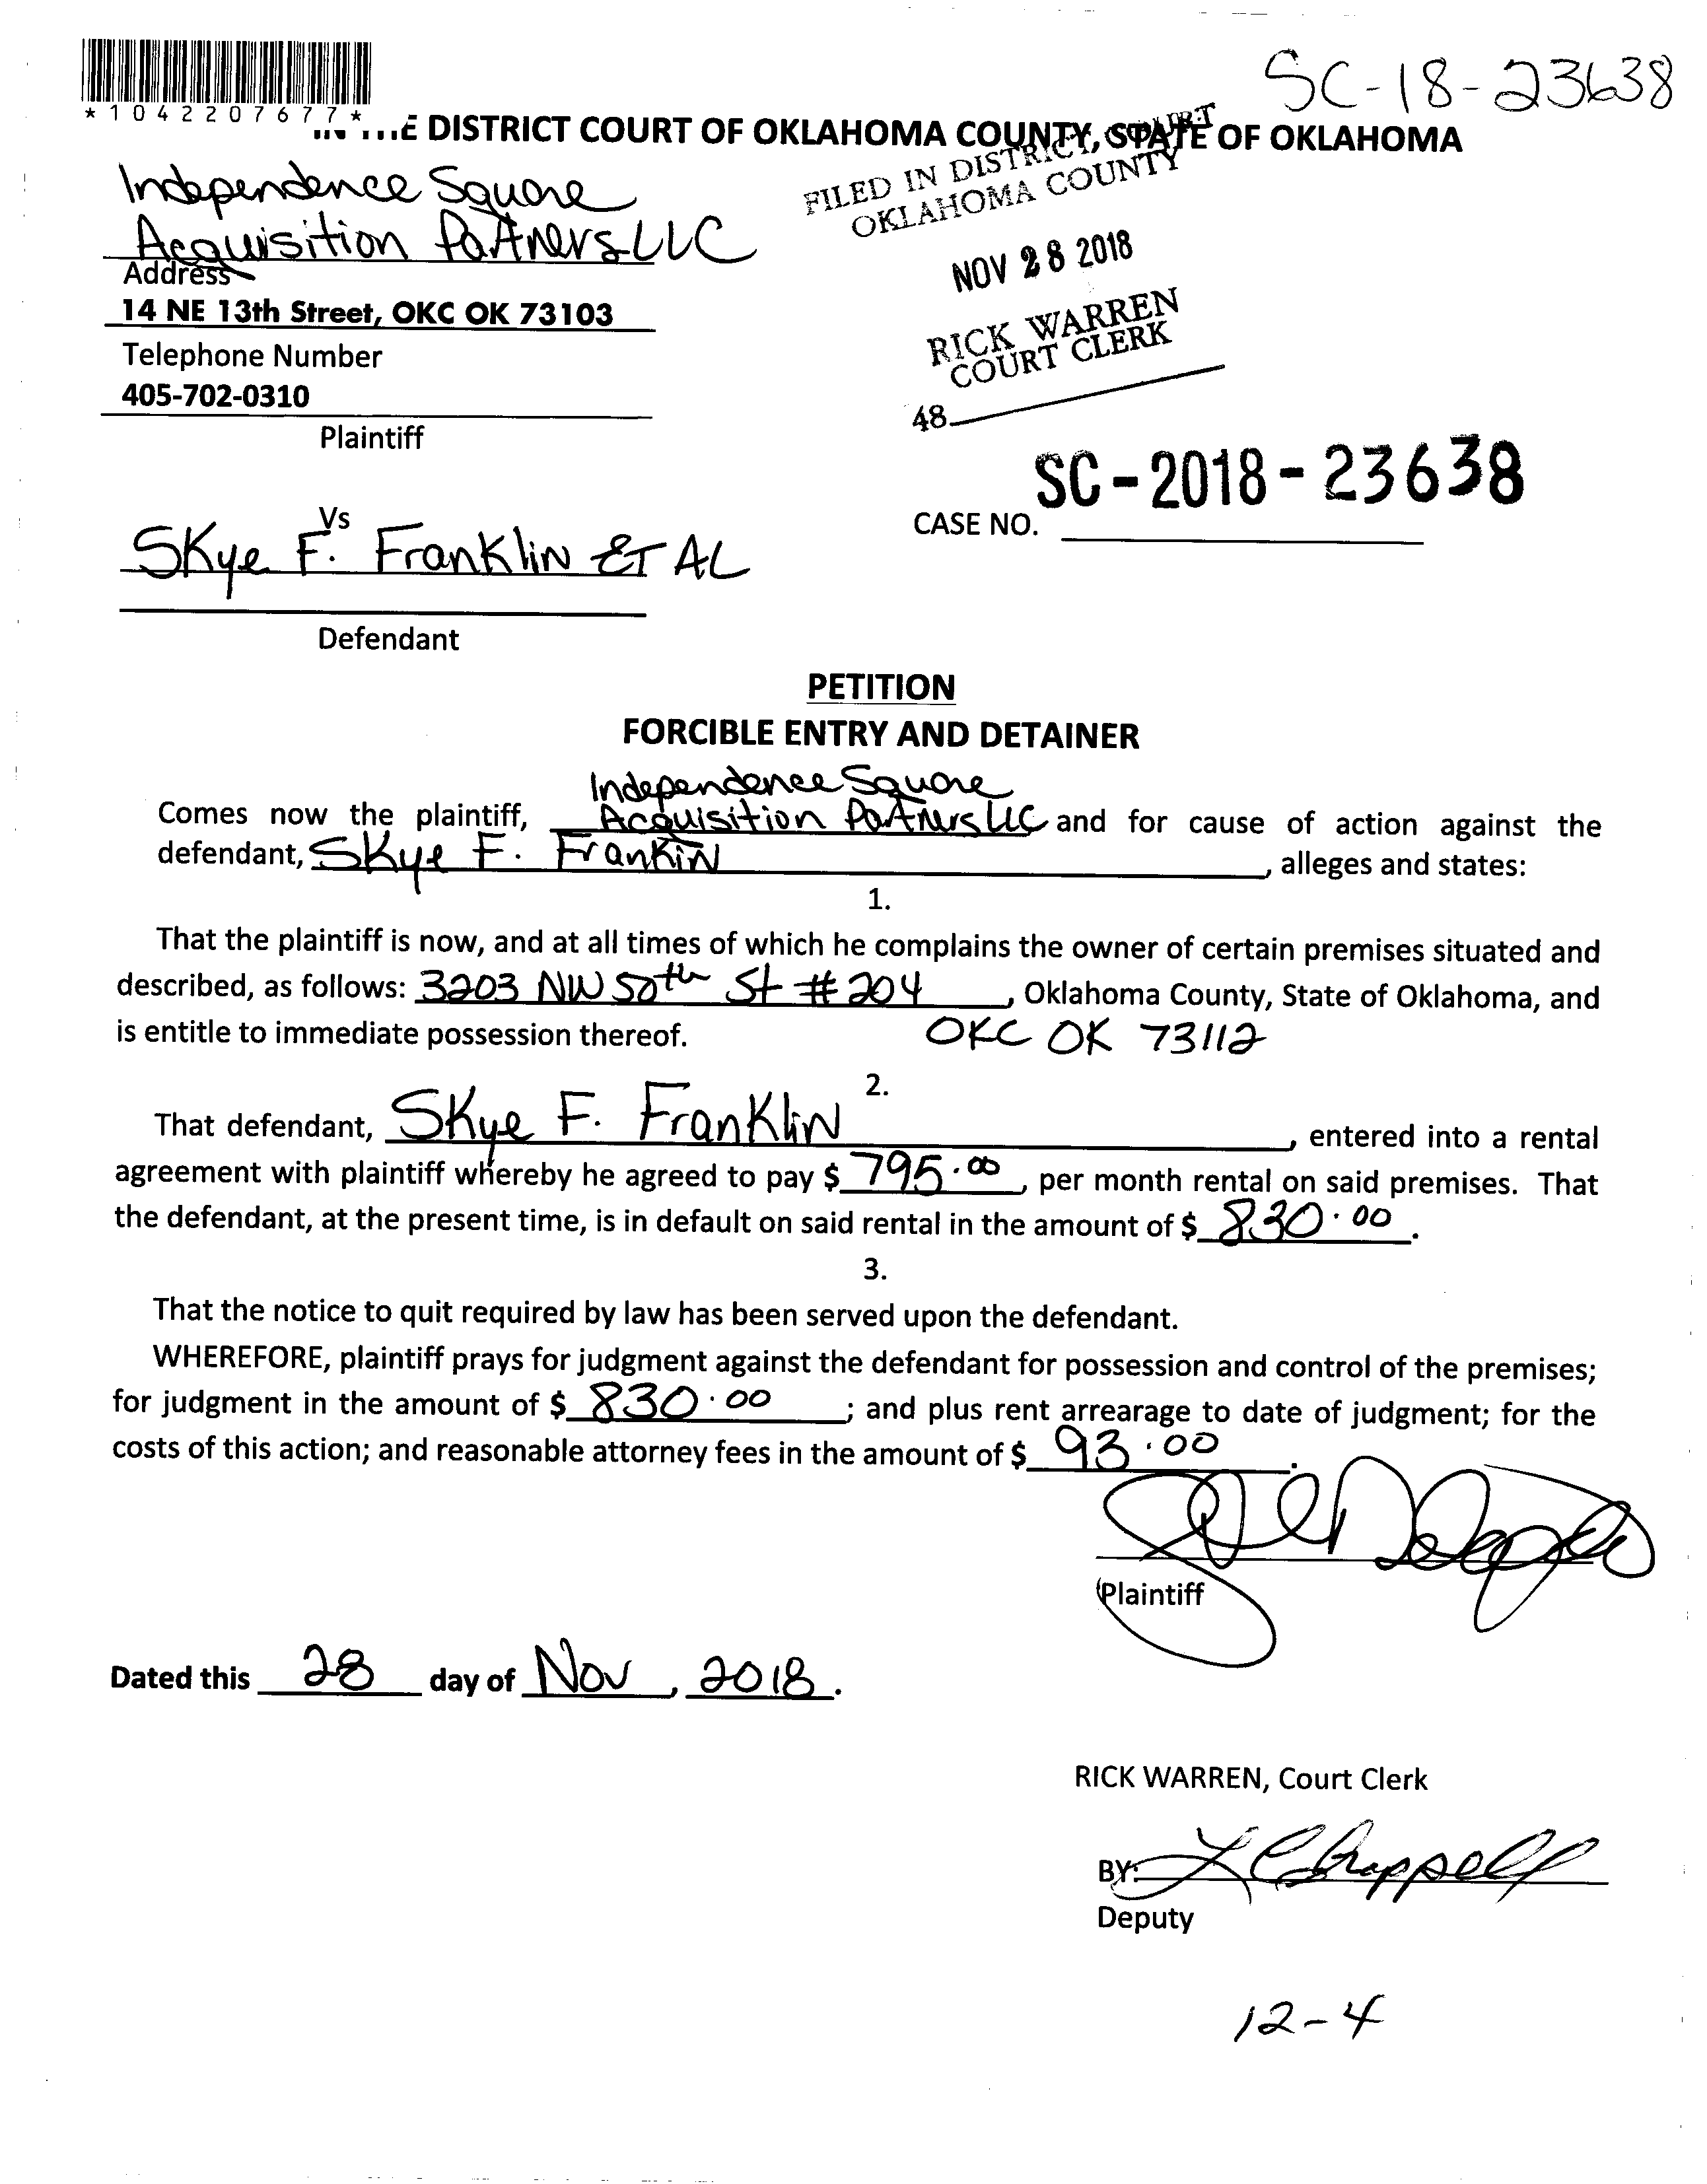 SC-18-23638
*1042207677*
IN THE DISTRICT COURT OF OKLAHOMA COUNTY, STATE OF OKLAHOMA
Independence Square
Acquisition Partners LLC
Address
14 NE 13th Street, OKC OK 73103
Telephone Number
405-702-0310
Plaintiff
FILED IN DISTRICT COURT
OKLAHOMA COUNTY
NOV 28 2018
RICK WARREN
COURT CLERK
48
SC-2018-23638
CASE NO.
Vs
Skye F. Franklin ET AL
Defendant
PETITION
FORCIBLE ENTRY AND DETAINER
Independence Square
Comes now the plaintiff, Acquisition Partners LLC and for cause of action against the
defendant, Skye F. Frankin, alleges and states:
1.
That the plaintiff is now, and at all times of which he complains the owner of certain premises situated and
described, as follows: 3203 NW 50th St #204, Oklahoma County, State of Oklahoma, and
is entitle to immediate possession thereof. OKC OK 73112
2.
That defendant, Skye F. Franklin, entered into a rental
agreement with plaintiff whereby he agreed to pay $ 795.00, per month rental on said premises. That
the defendant, at the present time, is in default on said rental in the amount of $ 830.00.
3.
That the notice to quit required by law has been served upon the defendant.
WHEREFORE, plaintiff prays for judgment against the defendant for possession and control of the premises;
for judgment in the amount of $ 830.00; and plus rent arrearage to date of judgment; for the
costs of this action; and reasonable attorney fees in the amount of $ 93.00.
Plaintiff
Dated this 28 day of Nov, 2018.
RICK WARREN, Court Clerk
BY: L Chappell
Deputy
12-4